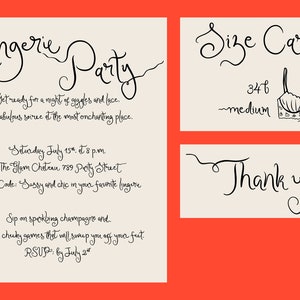 Lingerie
Party
Get ready for a night of giggles and lace.
fabulous soiree at the most enchanting place.
Saturday July 15th, at 8 p.m.
The Glam Chateau 789 Party Street
Code: Sassy and chic in your favorite lingerie
Sip on sparkling champagne and
cheeky games that will sweep you off your feet
RSVP: by July 2nd
Size Car
34B
~medium
Thank y